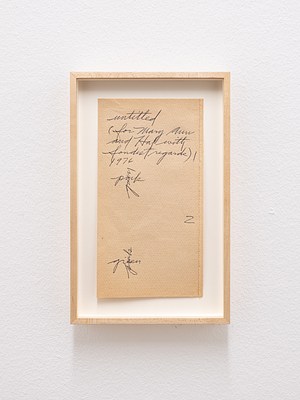 untitled
(for Mary Ann
and Hal with
fondest regards) 1
1976
pink
2
green